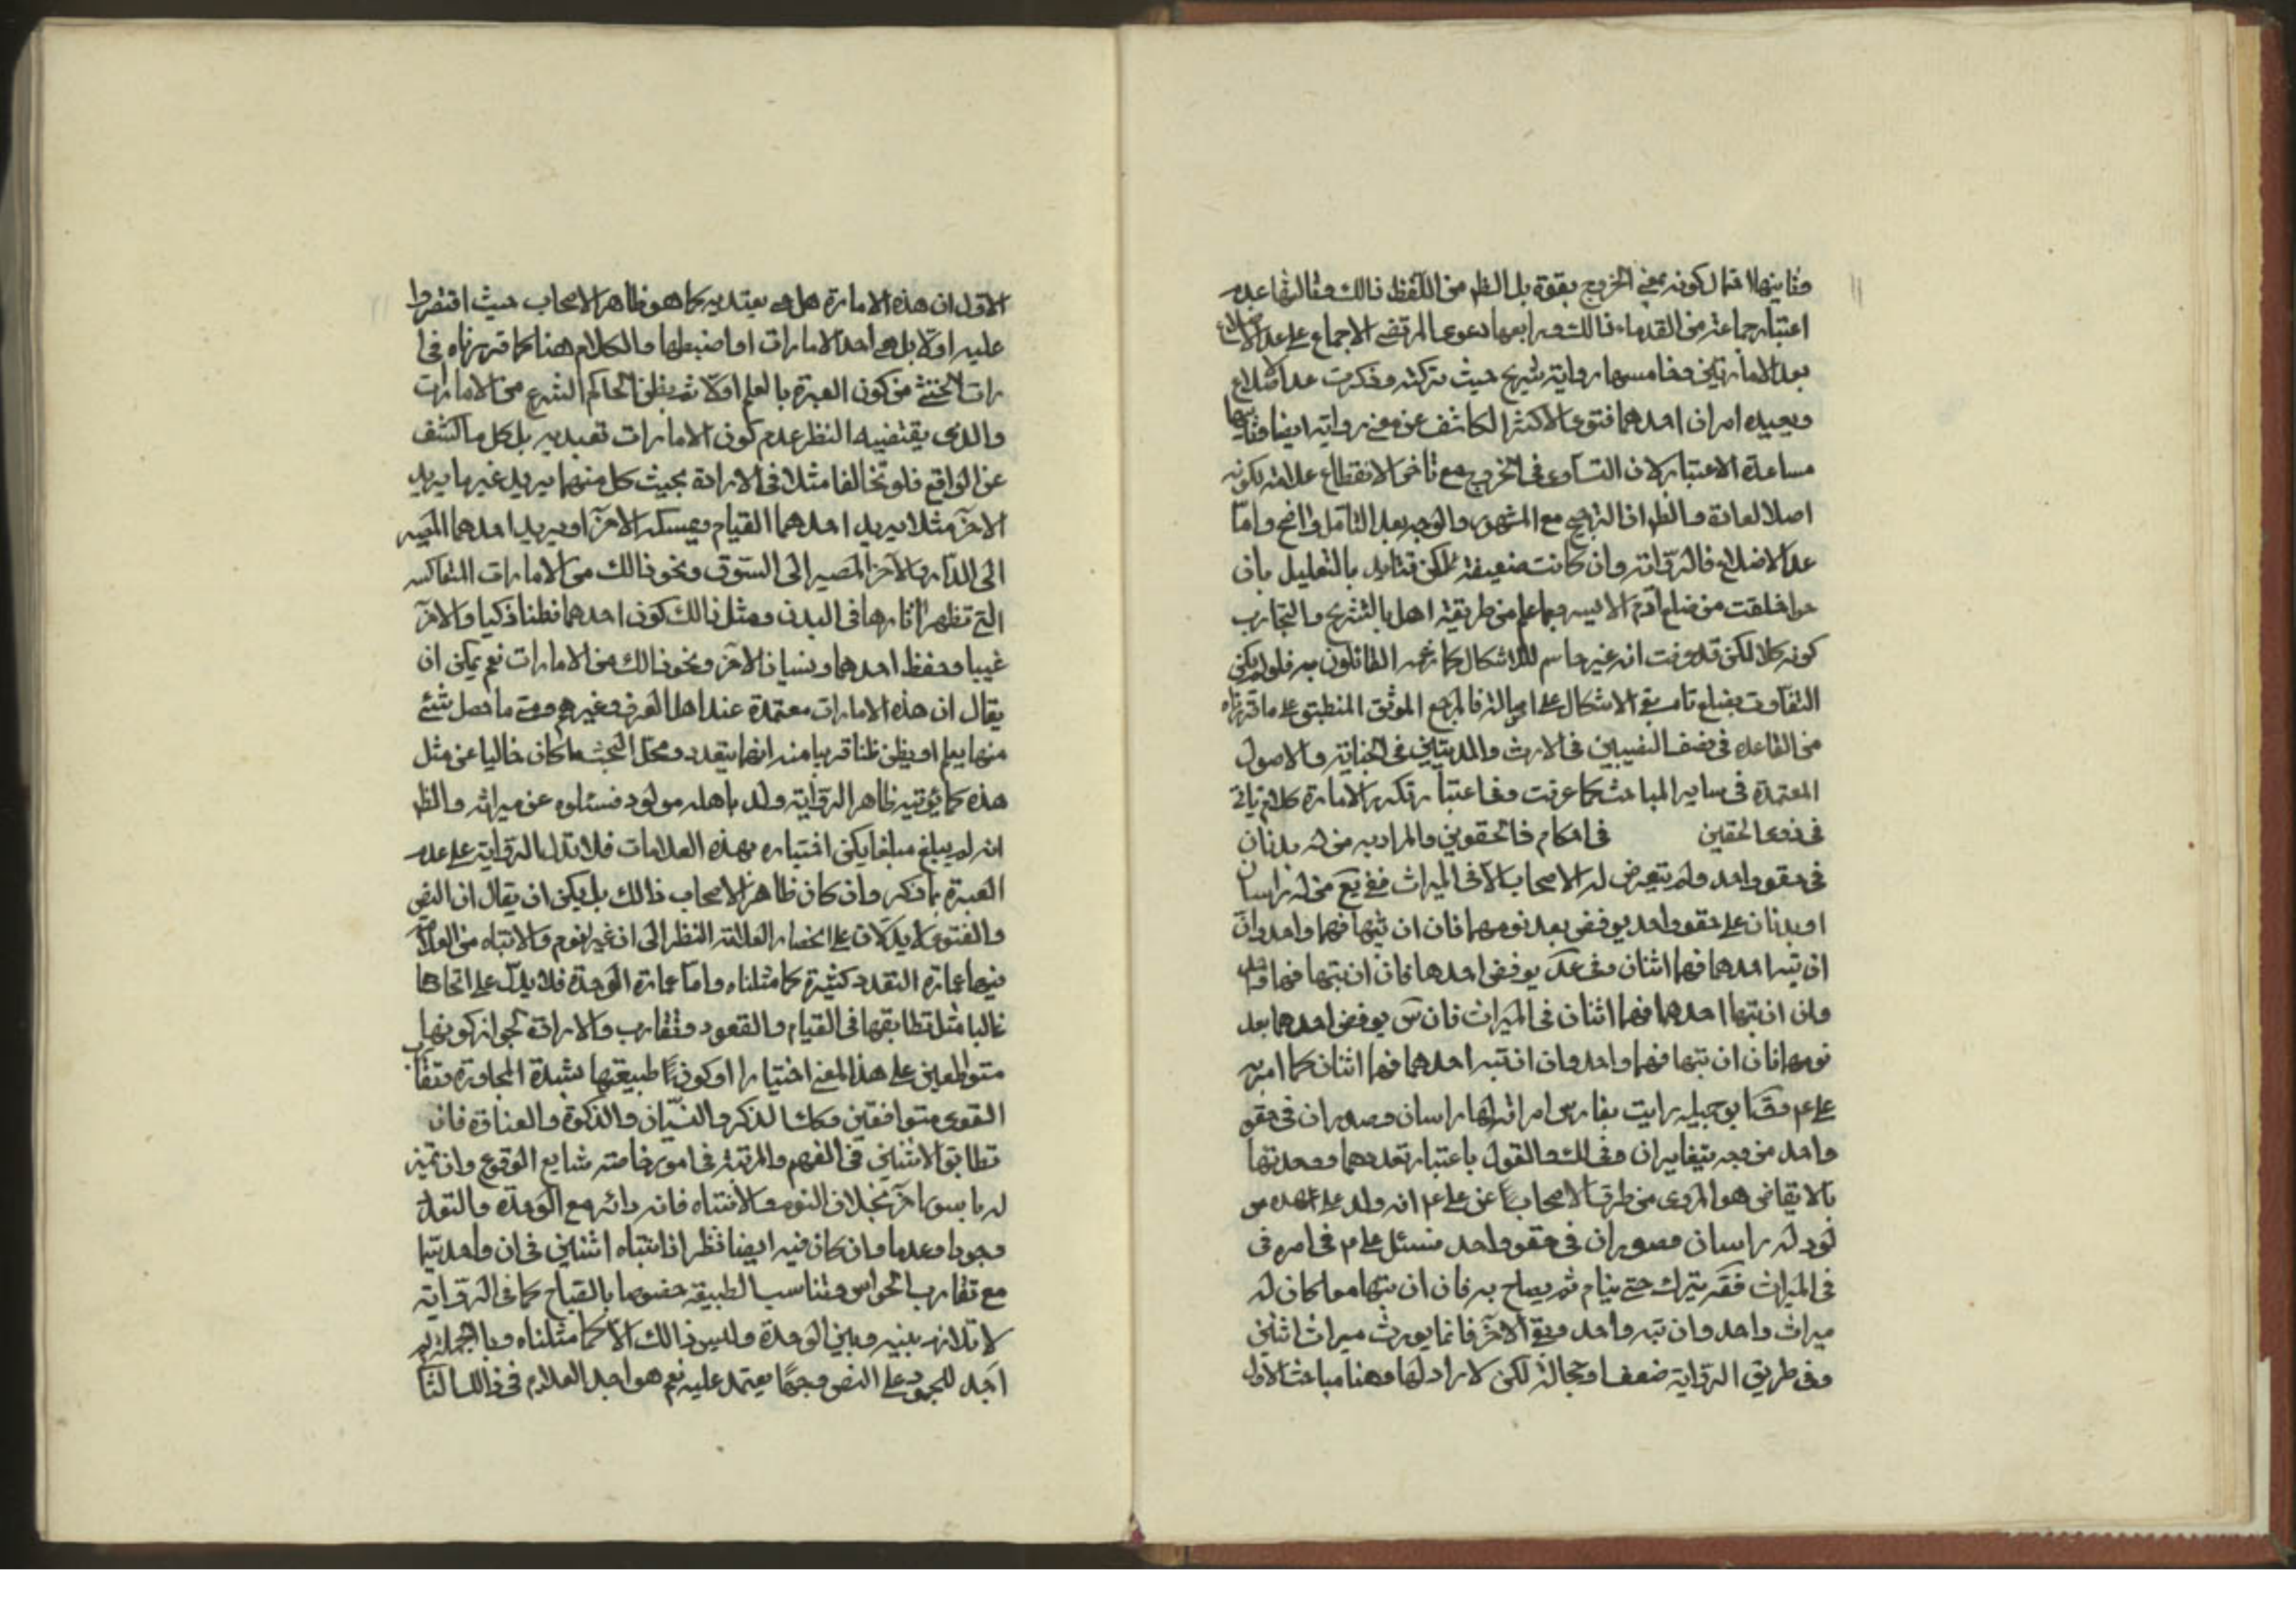 وثانيها احتمال كونه بمعنى الخروج بقوة بل الظ من اللفظ ذالك وثالثها عدم
اعتبار جماعة من القدماء ذالك ورابعها دعوى المرتضى الاجماع على عد الاضلاع
بعد الامارتين وخامسها رواية شريح حيث تركته وذكرت عد الاضلاع
ويعيده امران احدهما فتوى الاكثر الكاشف عن رواية ايضا وثانيهما
مساعدة الاعتبار لان التساوى فى الخروج مع تاخر الانقطاع علامة يكونه
اصلا لعادة والظ ان الترجيح مع المشهور والوجه بعد التامل واضح واما
عد الاضلاع فالرواية وان كانت ضعيفة لكن تتايد بالتعليل بان
حوا خلقت من ضلع آدم الايسر وبما علم من طريقة اهل التشريح والتجارب
كونه كلا لكن قد عرفت انه غير حاسم للاشكال كما زعمه القائلون به فلو لم يكن
التفاوت بضلع تام بقى الاشكال على احواله فالمرجع الموثق المنطبق على ما قررناه
من القاعده فى نصف النصيبين فى الارث والمديتين فى الجناية والاصول
المعتمدة فى ساير المباحث كما عرفت وفى اعتبار تكرر الامارة كلام ياتى
فى ذى الحقين فى احكام ذا الحقوين والمراد به من له بدنان
فى حقو واحد ولم يتعرض له الاصحاب الا فى الميراث ففى يع من له راسان
او بدنان على حقو واحد يوقض بعد نومهما فان ان تبها فهما واحد وان
ان تبه احدهما فهما اثنان وفى عد يوقض احدهما فان ان تبها فهما واحد
وان ان تبها احدهما فهما اثنان فى الميراث فان س يوقض احدهما بعد
نومهما فان ان تبها فهما واحد وان انتبه احدهما فهما اثنان كما امر به
على ع وقال ابو جميله رايت بفارس امراة لها راسان وصدران فى حقو
واحد من وجه يتغايران وفى لك والقول باعتبار تعددهما ووحدتهما
بالايقاض هو المروى من طرق الاصحاب عن على ع انه ولد على عهده مو
لود له راسان وصدران فى حقو واحد فسئل على ع فى امره فى
فى الميراث فقر يترك حتى ينام ثم يصاح به فان ان تبها معا كان له
ميراث واحد وان تبه واحد وبقى الآخر فانما يورث ميراث اثنين
وفى طريق الرواية ضعف او جهالة لكن لا راد لها وهنا مباحث الاول
الاول ان هذه الامارة هل هى يعتد به كما هو ظاهر الاصحاب حيث اقتصروا
عليه اولا بل هى احد الامارات او اضبطها والكلام هنا كما قررناه فى ا
رات الخنثى من كون العبرة بالعلم اولا ثم بظن الحاكم الشرع من الامارات
والذى يقتضيه النظر عدم كون الامارات تعبديه بل كل ما كشف
عن الواقع فلو تخالفا مثلا فى الارادة بحيث كل منهما يريد غير ما يريد
الآخر مثلا يريد احدهما القيام ويمسكه الآخر او يريد احدهما المصير
الى الدار والآخر المصير الى السوق ونحو ذالك من الامارات المتعاكسه
التى تظهر اثارها فى البدن ومثل ذالك كون احدهما فطنا ذكيا والآخر
غبيا وحفظ احدهما ونسيان الآخر ونحو ذالك من الامارات نعم يمكن ان
يقال ان هذه الامارات معتمدة عند اهل العرف وغيرهم ومتى ما حصل شئ
منها يعلم او يظن ظنا قريبا منه انهما يتعدد ومحل البحث ما كان خاليا عن مثل
هذه كما يؤتيه ظاهر الرواية ولد باهله مولود فسئلوه عن ميراثه والظ
انه لم يبلغ مبلغا يمكن اختباره بهذه العلامات فلا تدل الرواية على عدم
العبرة بما ذكر وان كان ظاهر الاصحاب ذالك بل يمكن ان يقال ان النص
والفتوى لا يدلان على انحصار العلامة النظر الى ان غير النوم والانتباه من العلا
فيها عبارة التعدد كثيرة كما مثلناه واما عبارة الوحدة فلا يدل على اتحادها
غالبا مثل تطابقها فى القيام والقعود وتقارب والارادة لجواز كونهما
متواطئين على هذا المعنى اختيارا او كون طبيعتهما لشدة المجاورة وتقارب
القوى متوافقين وكذا الذكر والنسيان والذكورة والعناوة فان
تطابق الاثنين فى الفهم والمرتبة فى امور خاصة شايع الوقوع وان تميز
له باسوى آخر بخلاف النوم والانتباه فانه دائر مع الوحدة والتعدد
وجودا وعدما وان كان فيه ايضا نظر اذا انتباه اثنين فى ان واحد سيما
مع تقارب الحواس وتناسب الطبيقة خصوصا بالصياح كما فى الرواية
لا تلازم بينه وبين الوحدة وليس ذالك الا كما مثلناه وبالجملة لم
اجد للجمود على النص وجها يعتمد عليه نعم هو احد العلايم فى ذالك الثا